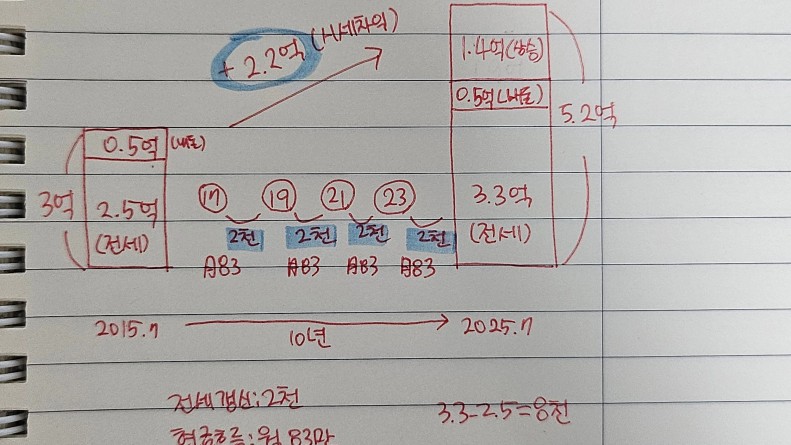 +2.2억 (시세차익)
1.4억(상승)
0.5억(내돈)
5.2억
0.5억 (내돈)
3억
2.5억
(전세)
17 19 21 23
3.3억
(전세)
2천 2천 2천 2천
月83 月83 月83 月83
2015.7
10년
2025.7
전세갱신:2천
3.3-2.5=8천
현금흐름:월 83만